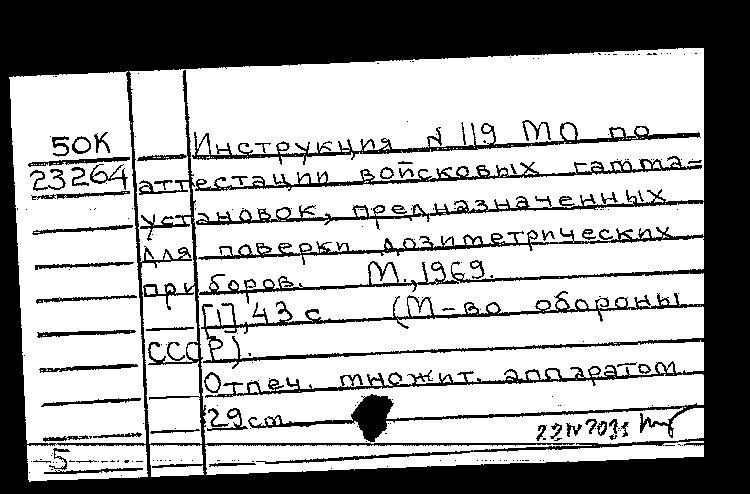 50К
23264
Инструкция N 119 МО по
аттестации войсковых гамма-
установок, предназначенных
для поверки дозиметрических
приборов. М., 1969.
[1], 43 с. (М-во обороны
СССР).
Отпеч. множит. аппаратом
29 см
5